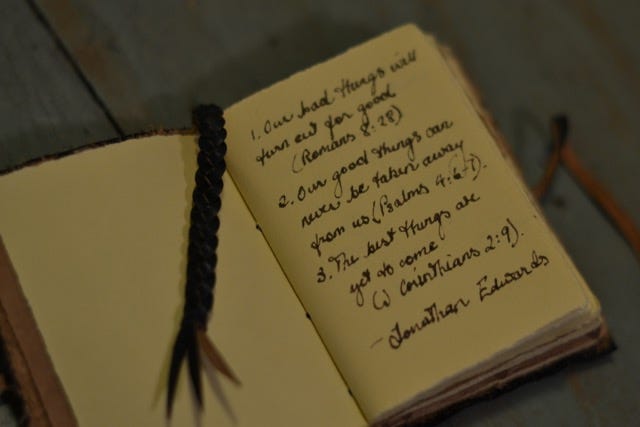 1. Our bad things will
turn out for good
(Romans 8:28)
2. Our good things can
never be taken away
from us (Psalms 4:6-7).
3. The best things are
yet to come
(1 Corinthians 2:9).
- Jonathan Edwards